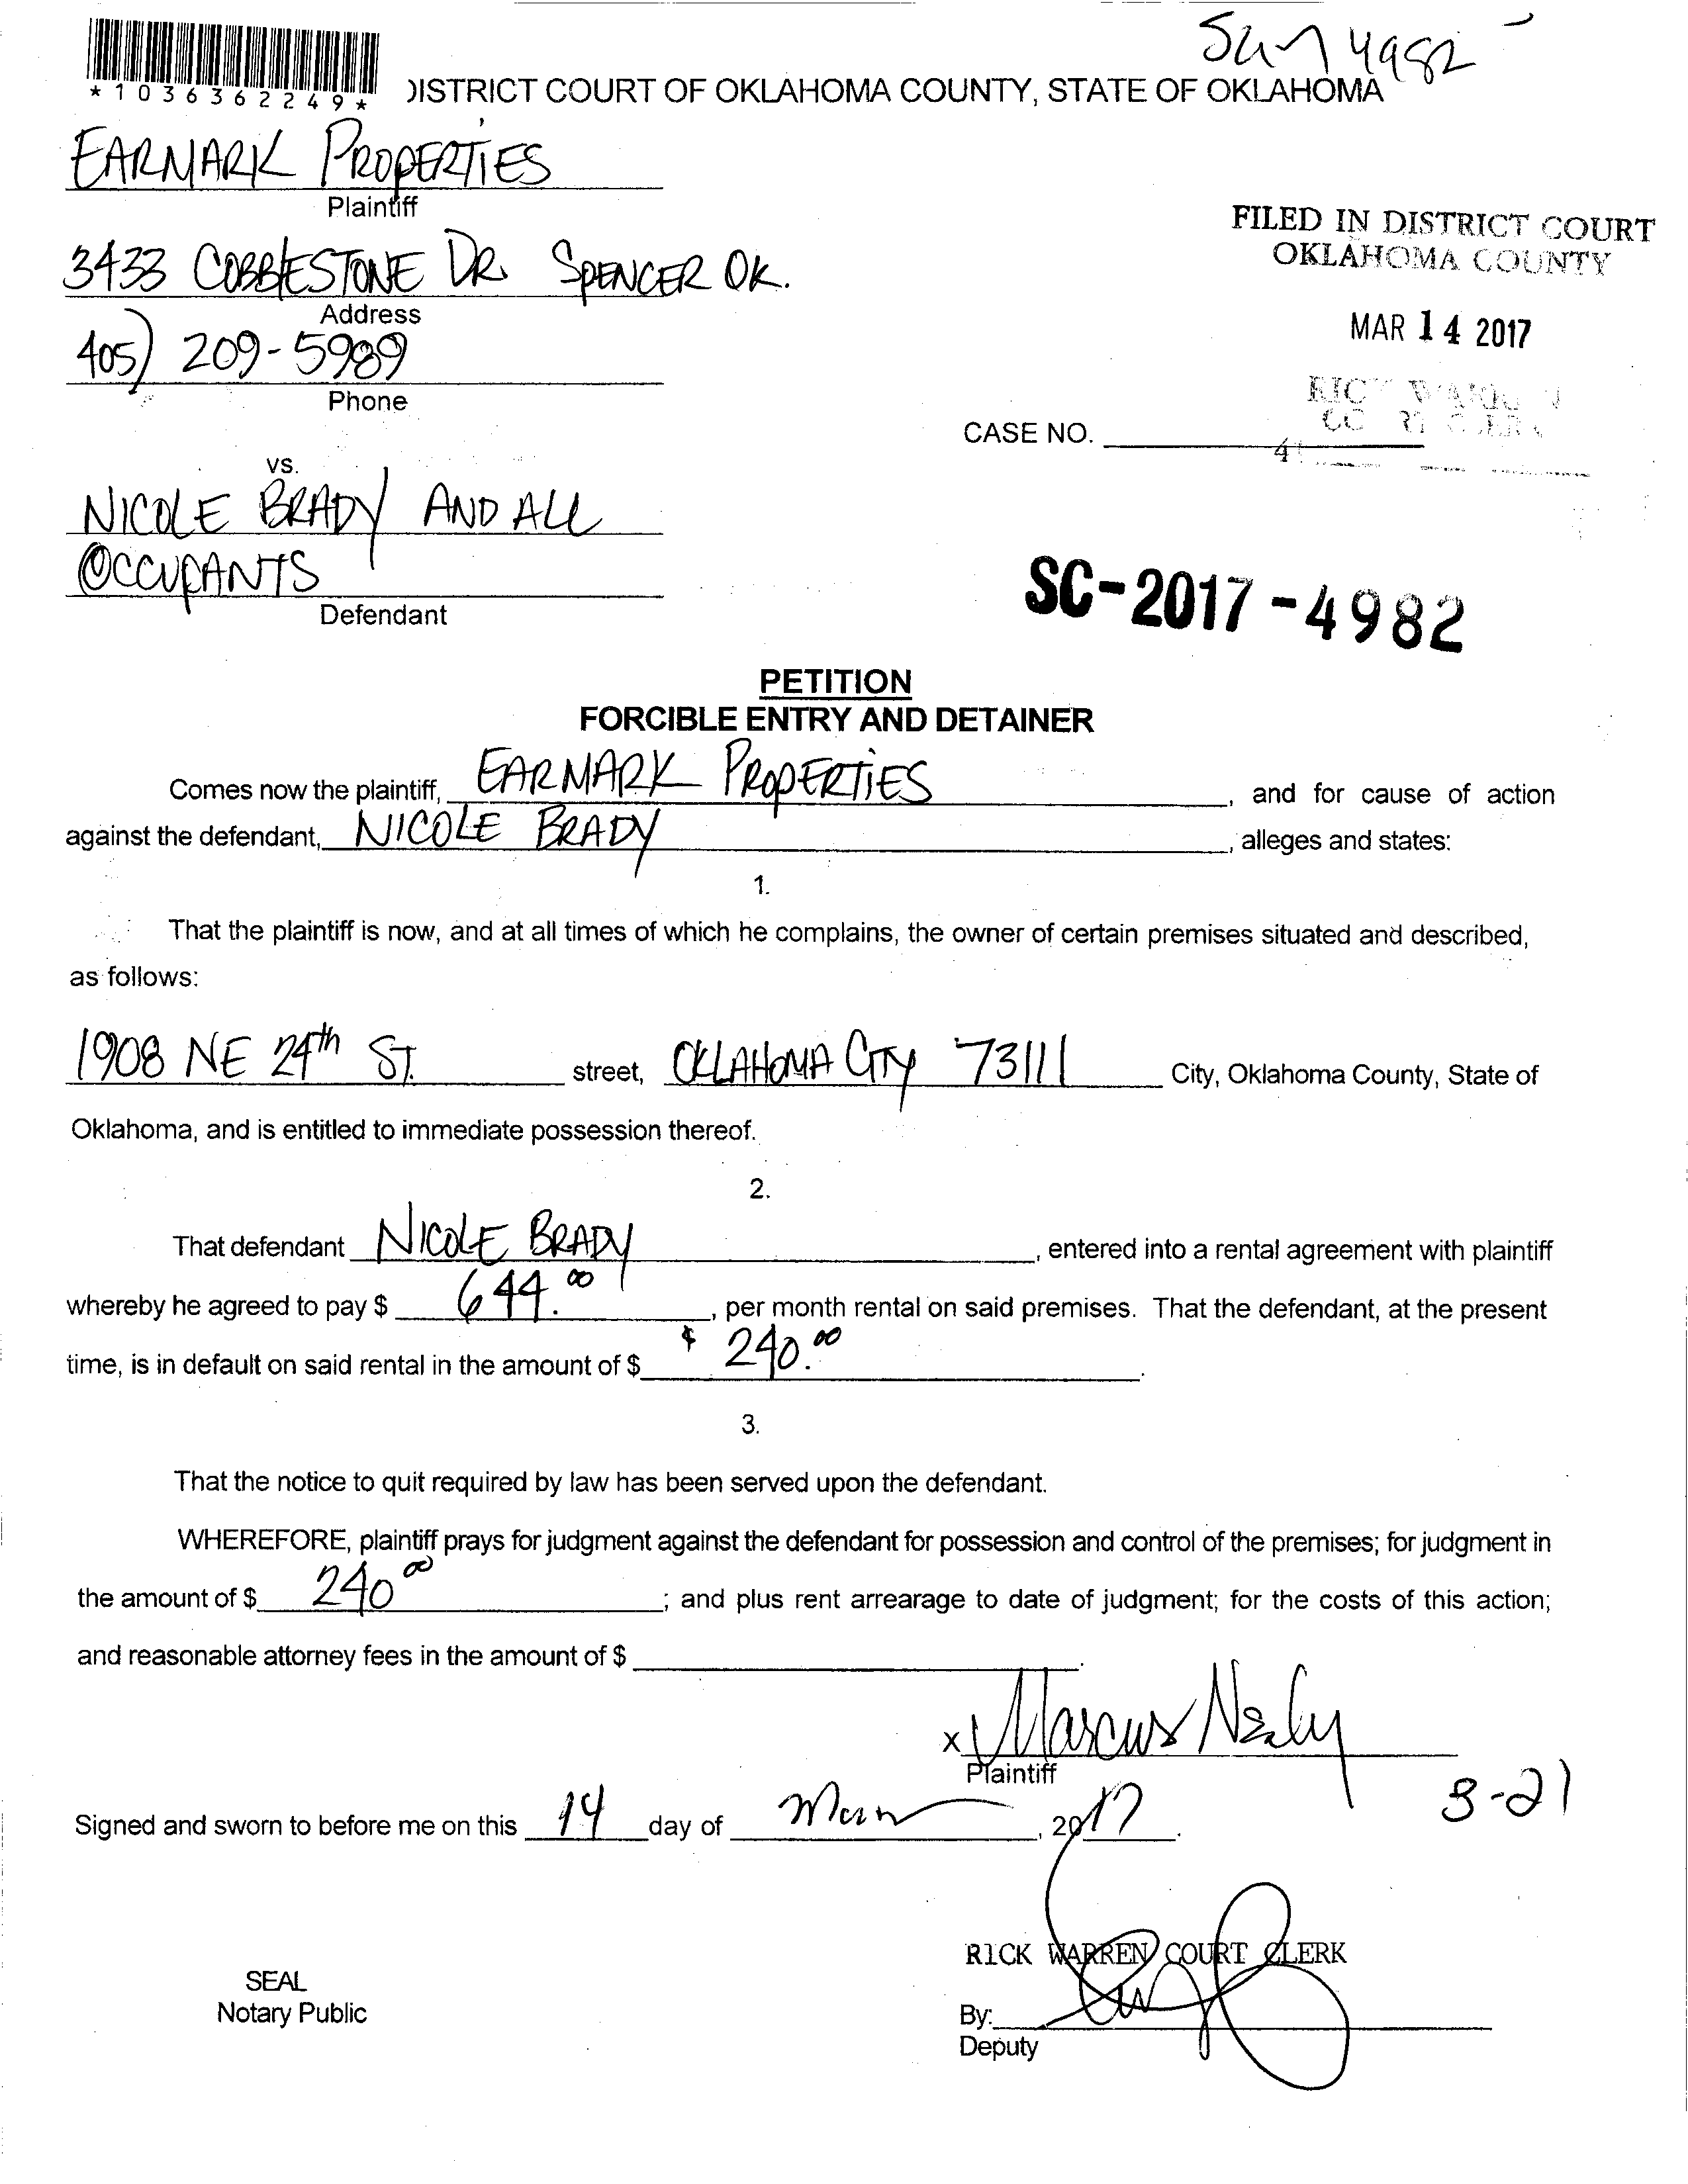 4982
*1036362249*
DISTRICT COURT OF OKLAHOMA COUNTY, STATE OF OKLAHOMA
EARMARK PROPERTIES
Plaintiff
3433 COBBLESTONE DR. SPENCER OK.
Address
405) 209-5989
Phone
FILED IN DISTRICT COURT
OKLAHOMA COUNTY
MAR 14 2017
CASE NO.
vs.
NICOLE BRADY AND ALL
OCCUPANTS
Defendant
SC-2017-4982
PETITION
FORCIBLE ENTRY AND DETAINER
Comes now the plaintiff, EARMARK PROPERTIES, and for cause of action
against the defendant, NICOLE BRADY, alleges and states:
1.
That the plaintiff is now, and at all times of which he complains, the owner of certain premises situated and described,
as follows:
1908 NE 24th ST. street, OKLAHOMA CITY 73111 City, Oklahoma County, State of
Oklahoma, and is entitled to immediate possession thereof.
2.
That defendant NICOLE BRADY, entered into a rental agreement with plaintiff
whereby he agreed to pay $ 644.00, per month rental on said premises. That the defendant, at the present
time, is in default on said rental in the amount of $ $ 240.00.
3.
That the notice to quit required by law has been served upon the defendant.
WHEREFORE, plaintiff prays for judgment against the defendant for possession and control of the premises; for judgment in
the amount of $ 240 00; and plus rent arrearage to date of judgment; for the costs of this action;
and reasonable attorney fees in the amount of $ .
x Marcus Nealy
Plaintiff
3-21
Signed and sworn to before me on this 14 day of Mar, 2017.
RICK WARREN COURT CLERK
SEAL
Notary Public
By:
Deputy